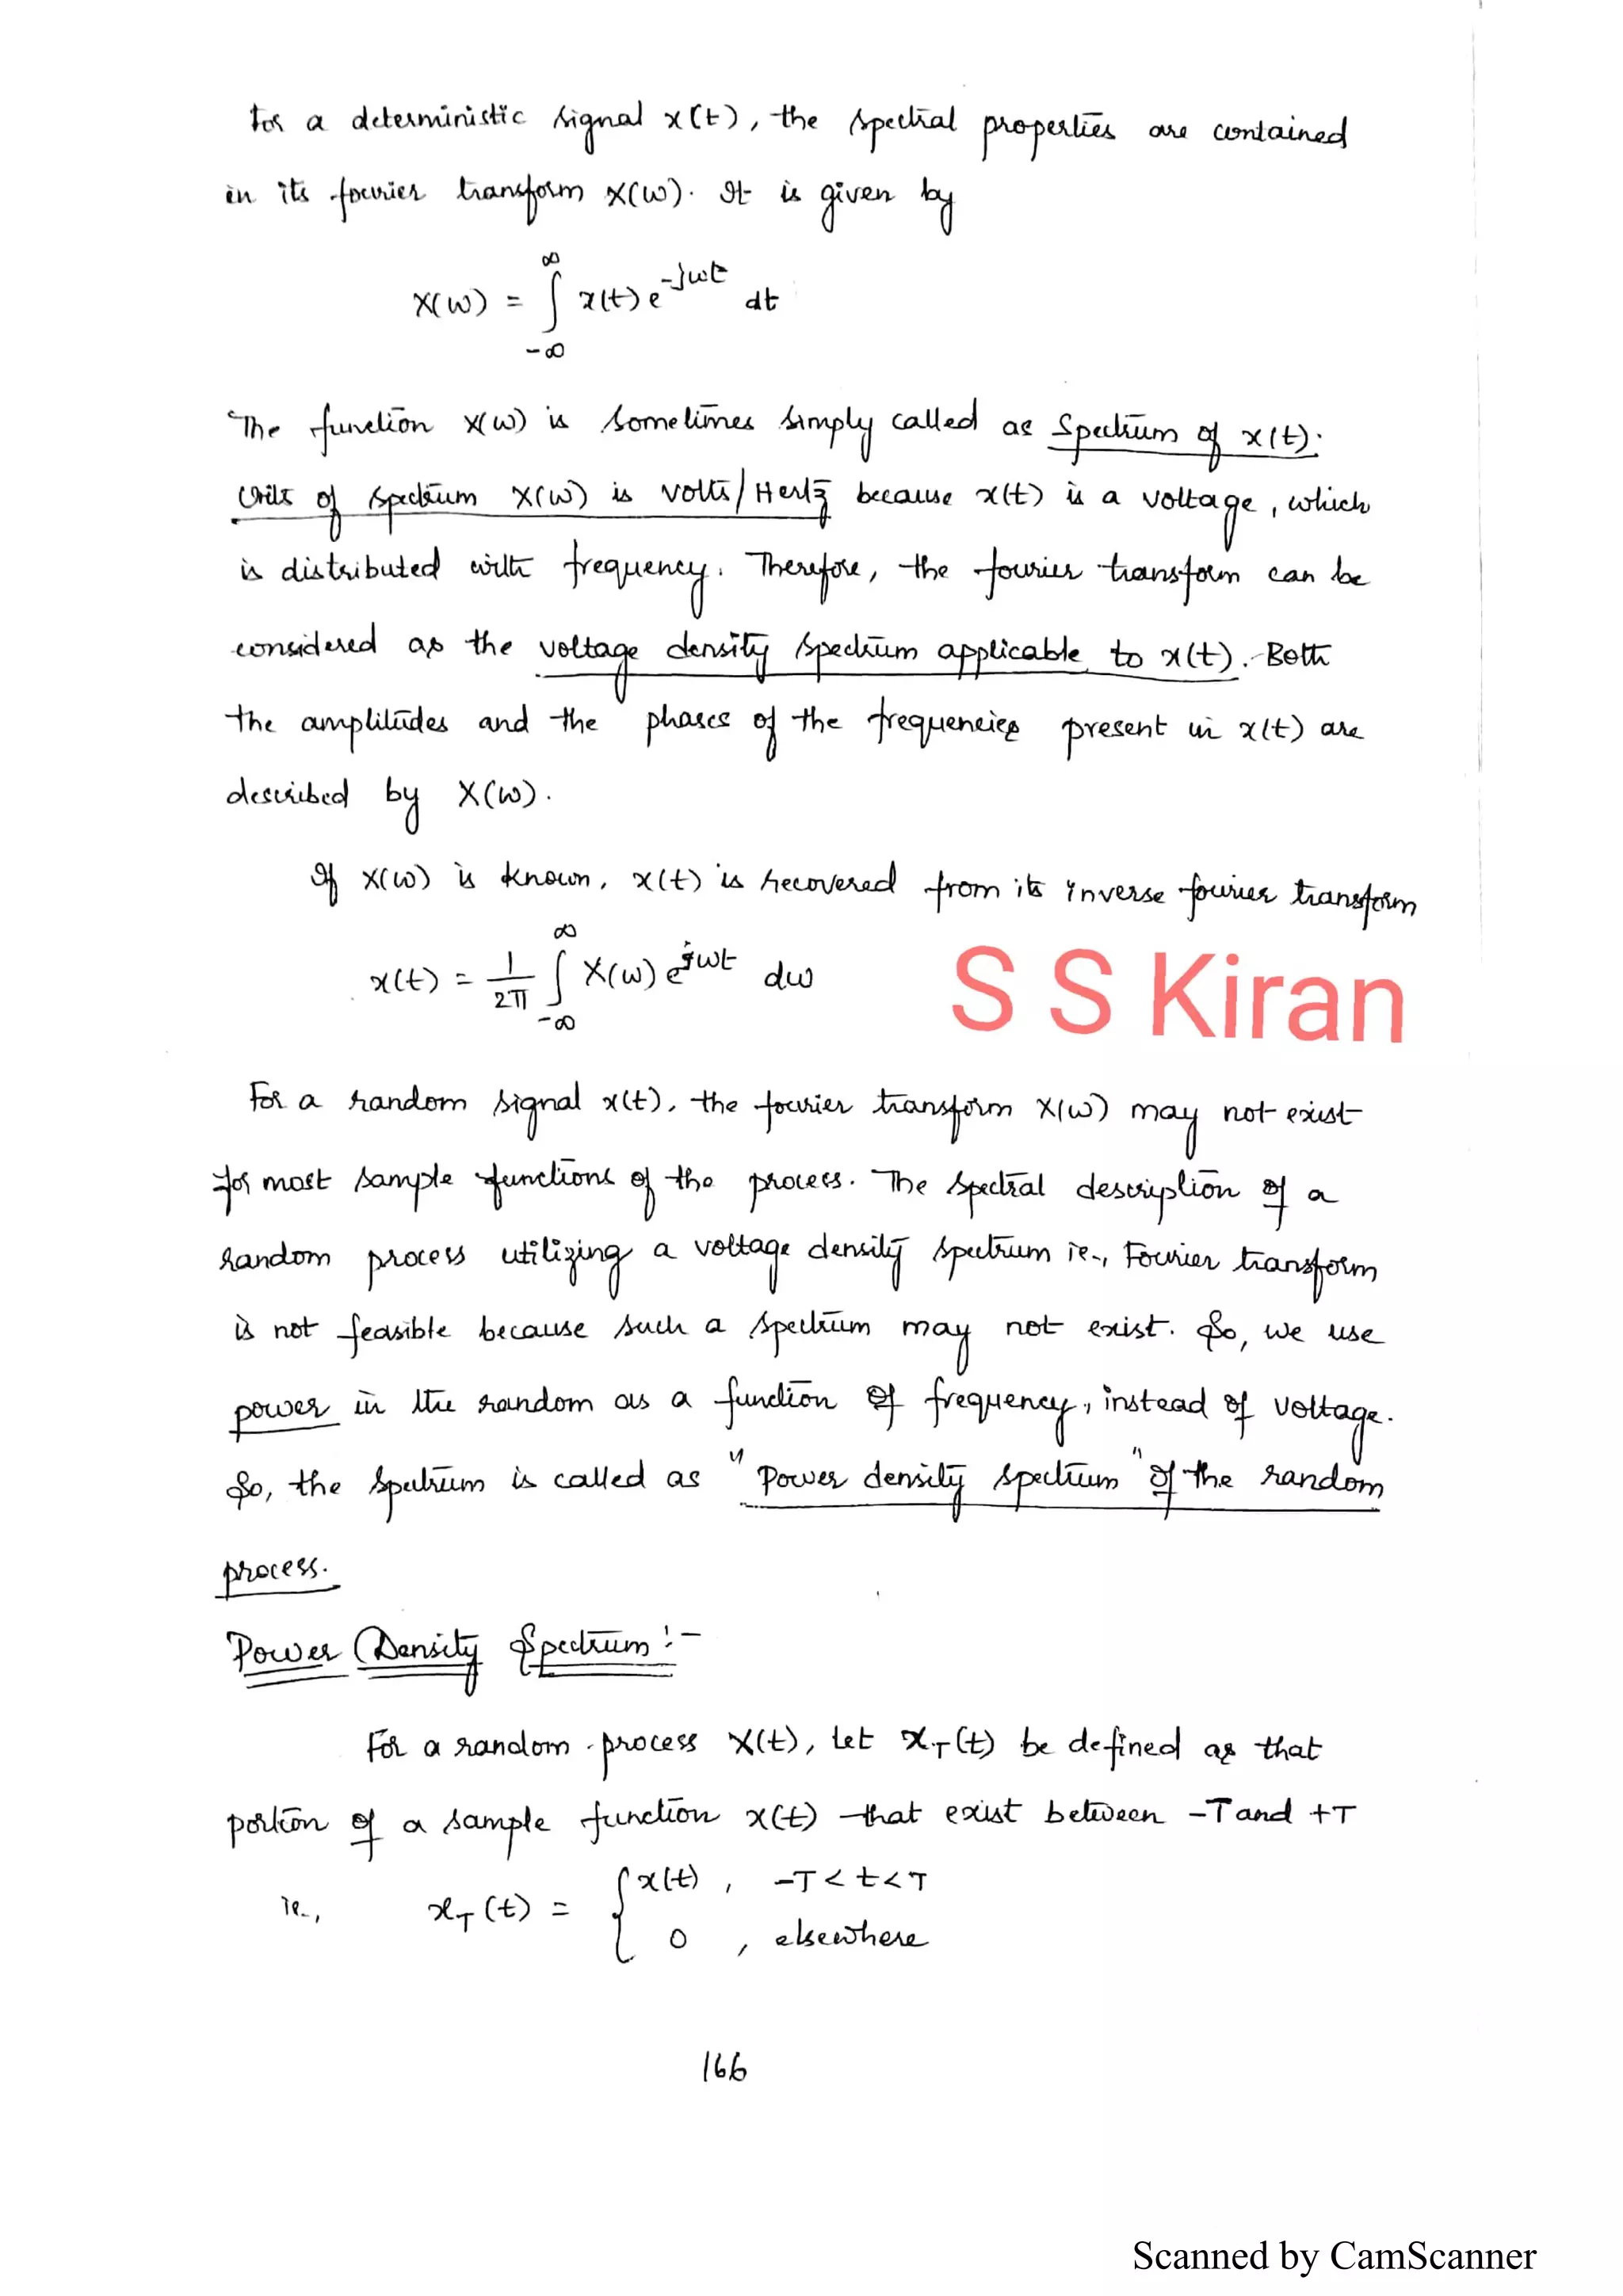 For a deterministic signal x(t), the spectral properties are contained
in its fourier transform X(ω). It is given by
X(ω) = ∫_{-∞}^{∞} x(t) e^{-jωt} dt
The function X(ω) is sometimes simply called as Spectrum of x(t).
Units of spectrum X(ω) is volts/Hertz because x(t) is a voltage, which
is distributed with frequency. Therefore, the fourier transform can be
considered as the voltage density spectrum applicable to x(t). Both
the amplitudes and the phases of the frequencies present in x(t) are
described by X(ω).
If X(ω) is known, x(t) is recovered from its inverse fourier transform
x(t) = 1/2π ∫_{-∞}^{∞} X(ω) e^{jωt} dω
S S Kiran
For a random signal x(t), the fourier transform X(ω) may not exist
for most sample functions of the process. The spectral description of a
random process utilizing a voltage density spectrum ie., Fourier transform
is not feasible because such a spectrum may not exist. So, we use
power in the random as a function of frequency, instead of voltage.
So, the spectrum is called as "Power density spectrum" of the random
process.
Power Density Spectrum:-
For a random process X(t), let x_T(t) be defined as that
portion of a sample function x(t) that exist between -T and +T
ie., x_T(t) = { x(t) , -T < t < T
0 , elsewhere
166
Scanned by CamScanner